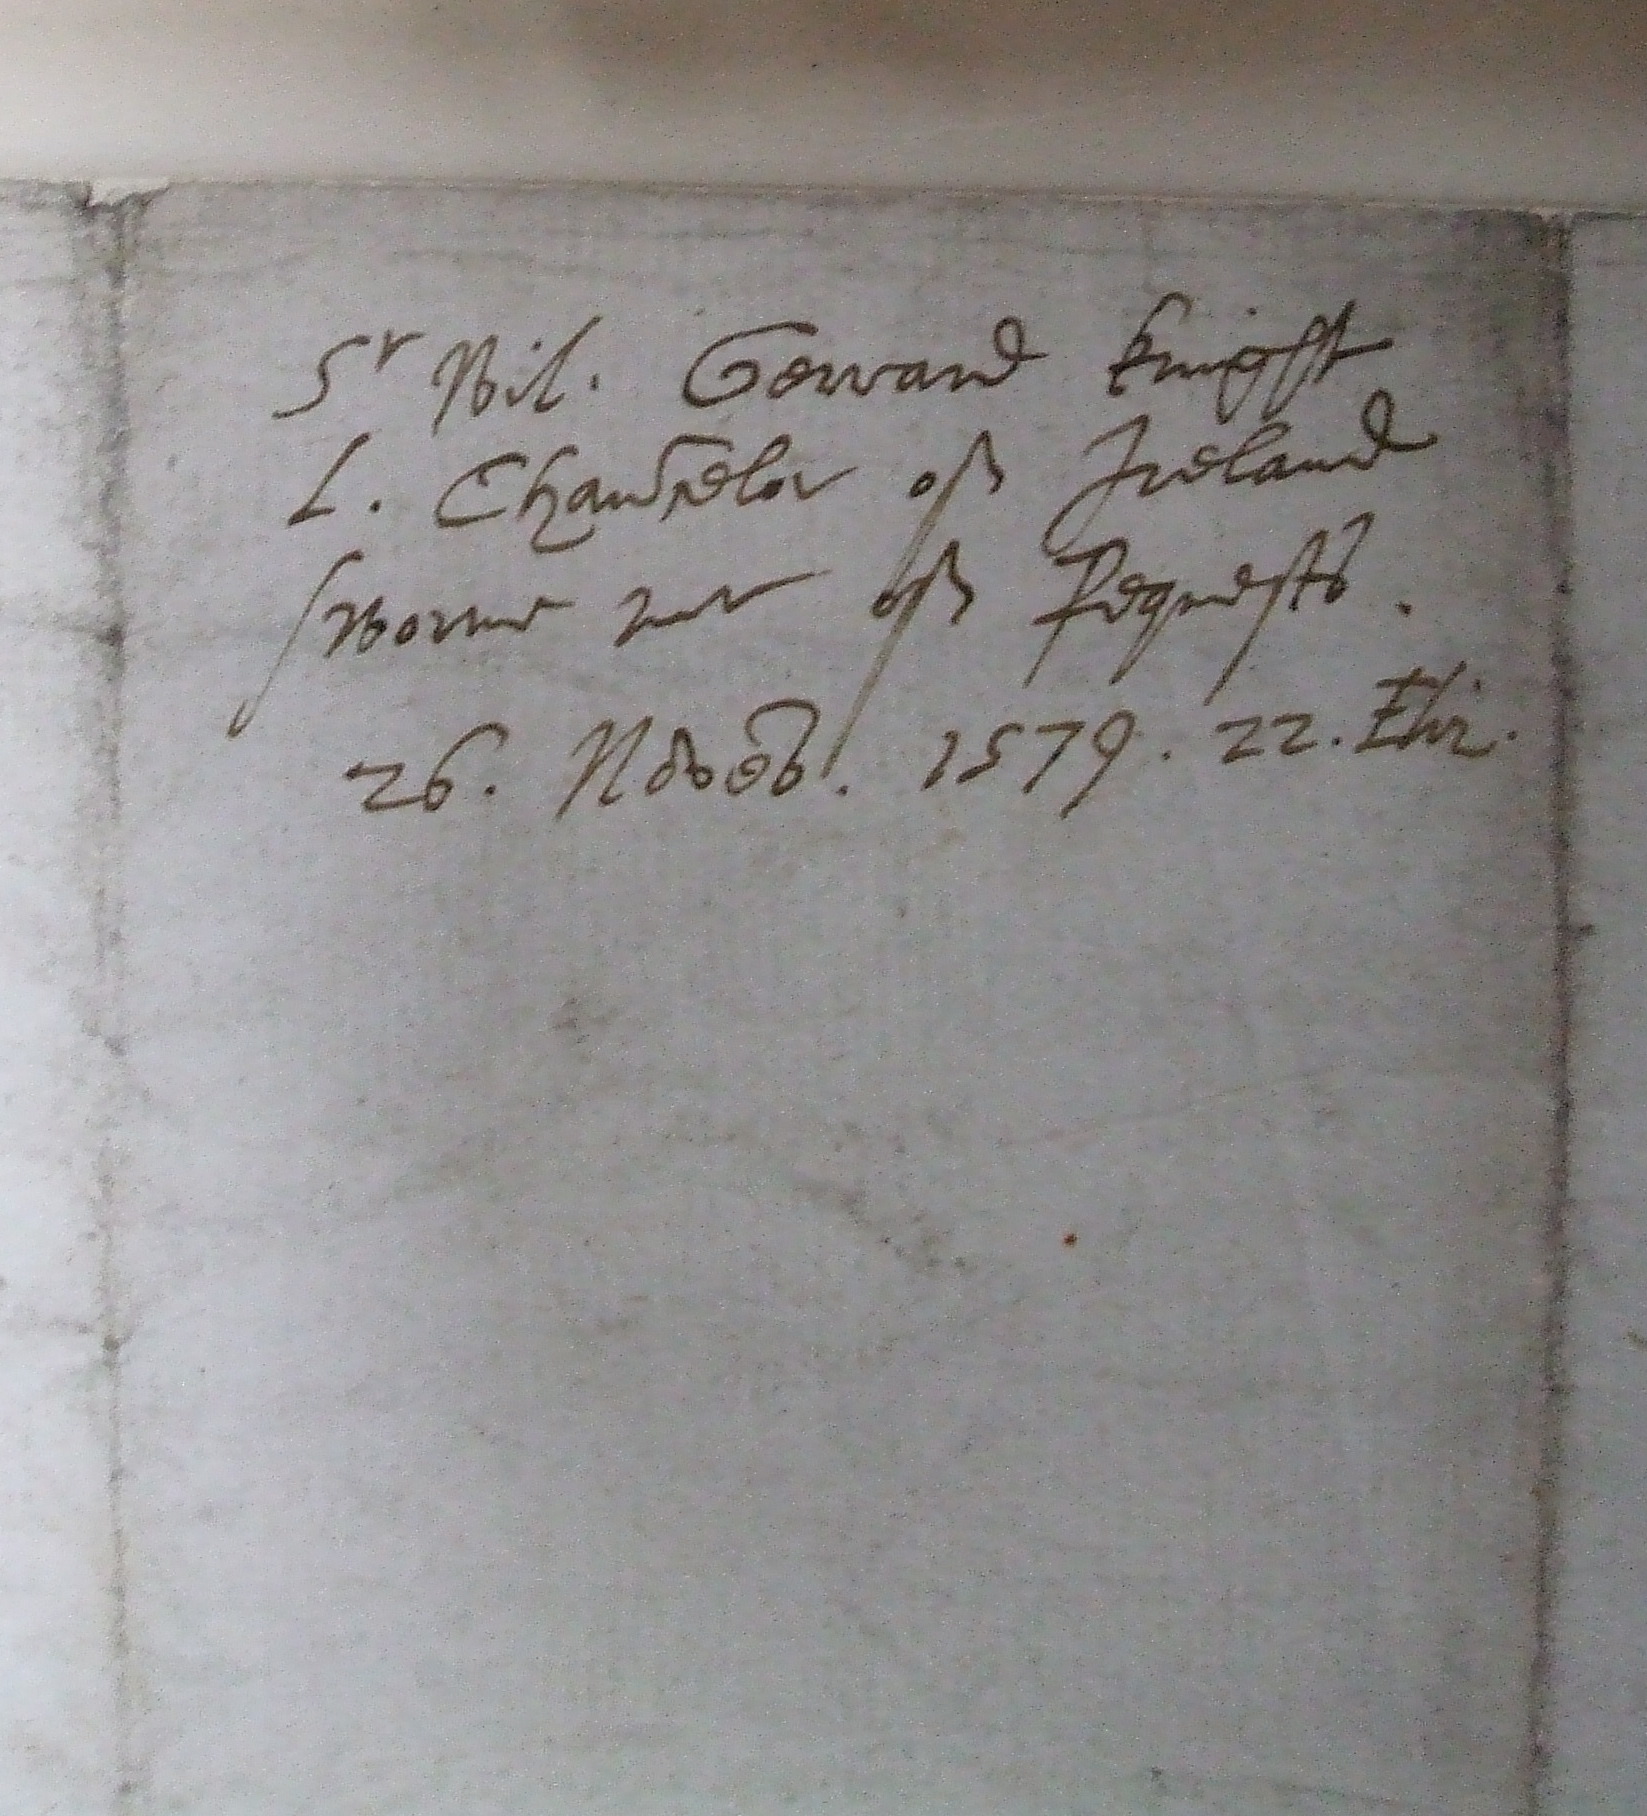 Sr Wil. Gerrard knight
L. Chauncelor off Ireland
sworne mr off Requests.
26. Novēb. 1579. 22. Eliz.